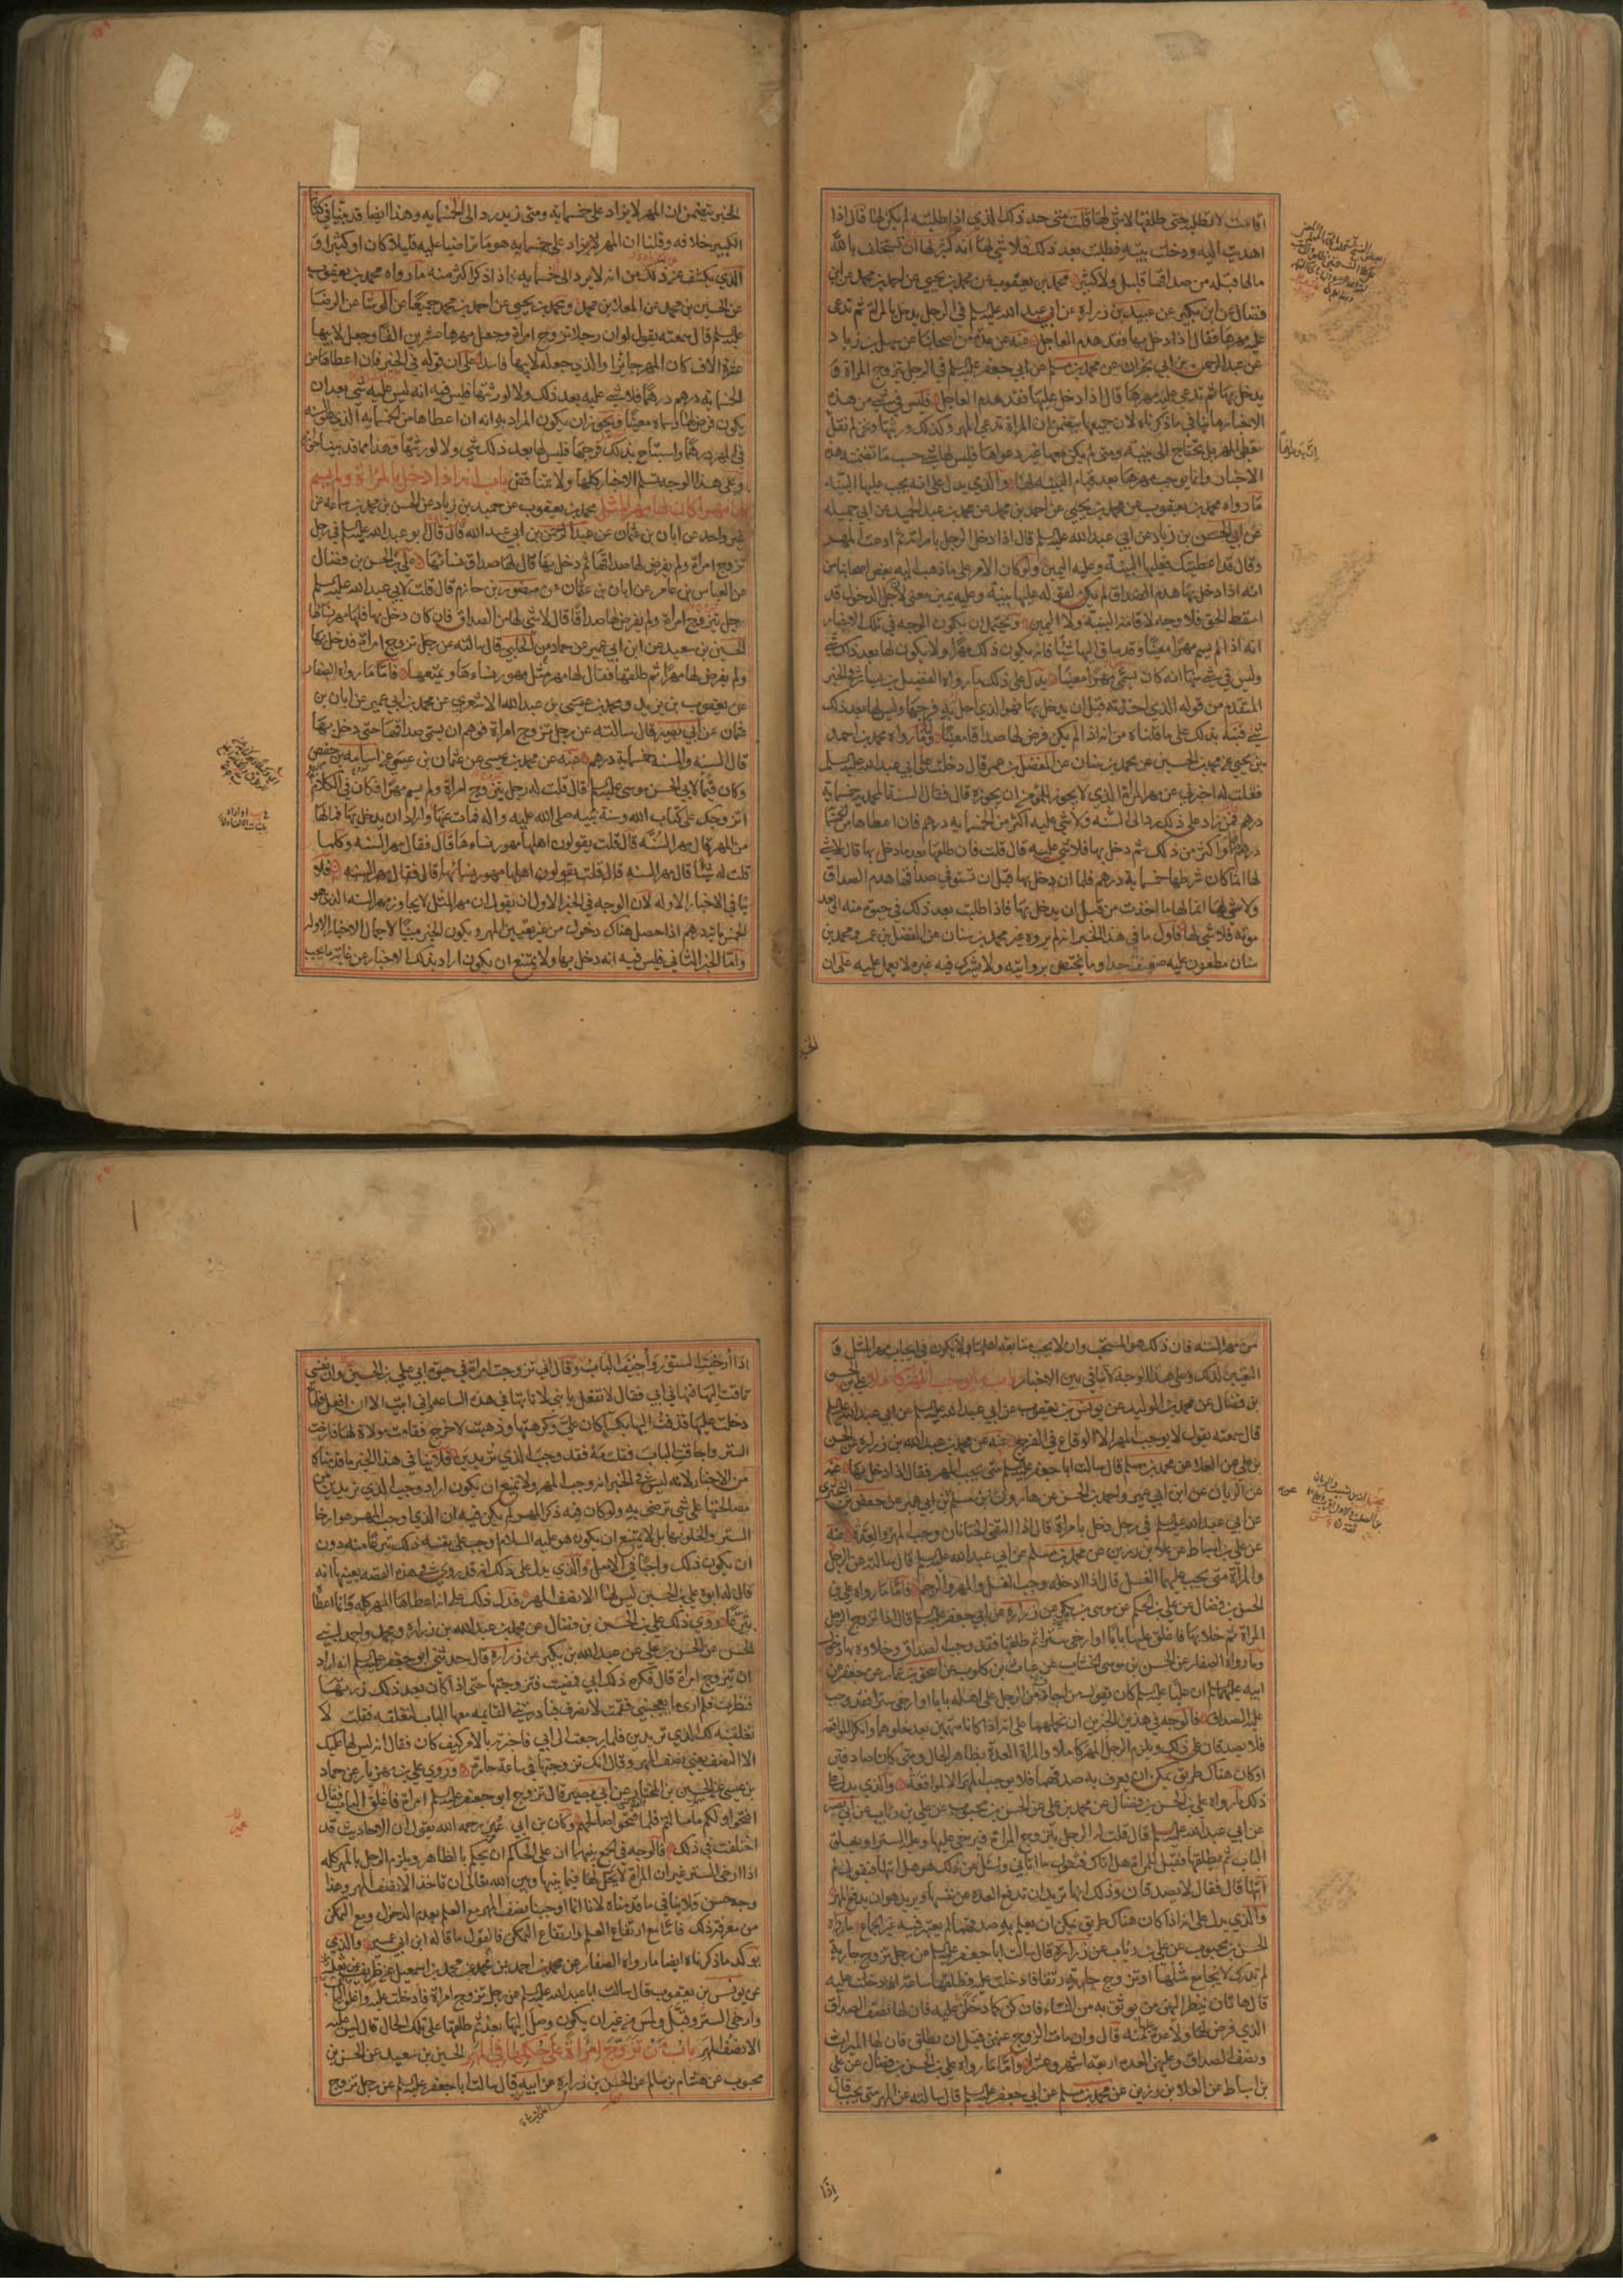 اقامت لا تطلبه حتى طلقها لا شي لها قلت متى حد ذلك الذي اذا طلبته لم يكن لها قال اذا
اهديت اليه ودخلت بيته فطلبت بعد ذلك فلا شي لها انه كثير لها ان تستحلف بالله
مالها قبله من صداقها قليل ولا كثير محمد بن يعقوب عن محمد بن يحيى عن احمد بن محمد عن ابن
فضال عن ابن بكير عن عبيد بن زرارة عن ابي عبد الله عليه السلم في الرجل يدخل بالمراة ثم تدعى
عليه مهرها فقال اذا دخل بها فقد هدم العاجل عنه عن عدة من اصحابنا عن سهل بن زياد
عن عبد الرحمن بن ابي نجران عن محمد بن مسلم عن ابي جعفر عليه السلم في الرجل يتزوج المراة و
يدخل بها ثم تدعى عليه مهرها قال اذا دخل عليها فقد هدم العاجل فليس في شي من هذه
الاخبار ما ينافي ما ذكرناه لان جميعها يتضمن ان المراة تدعى المهر وكذلك ورثتها ونحن لم نقل
الاخبار وانما يوجب مهرها بعد قيام البينه لها والذي يدل على انه يجب عليها البينه
ما رواه محمد بن يعقوب عن محمد بن يحيى عن احمد بن محمد عن محمد بن عبد الحميد عن ابي جميله
عن ابي الحسن بن زياد عن ابي عبد الله عليه السلم قال اذا دخل الرجل بامراته ثم ادعت المهر
وقال قد اعطيتك فعليها البينة وعليه اليمين ولو كان الامر على ما ذهب اليه بعض اصحابنا من
انه اذا دخل بها هدم الصداق لم يكن لقوله عليها بينة وعليه يمين معنى لان الدخول قد
اسقط الحق فلا وجه لاقامة البينة ولا اليمين ويحتمل ان يكون الوجه في تلك الاخبار
انه اذا لم يسم مهرا معينا وقد ساق اليها شيئا فانه يكون ذلك مهرا ولا يكون لها بعد ذلك شي
وليس في شي منها انه كان سمى مهرا معينا يدل على ذلك ما رواه الفضيل بن يسار في الخبر
المتقدم من قوله الذي اخذته قبل ان يدخل بها فهو الذي احل به فرجها وليس لها بعد ذلك
شي فنبه بذلك على ما قلناه من انه اذا لم يكن فرض لها صداقا معينا فاما ما رواه محمد بن احمد
بن يحيى عن محمد بن الحسين عن محمد بن سنان عن المفضل بن عمر قال دخلت على ابي عبد الله عليه السلم
فقلت له اخبرني عن مهر المراة الذي لا يجوز للمؤمن ان يجوزه قال فقال السنة المحمدية خمسماية
درهم فمن زاد على ذلك رد الى السنه ولا شي عليه اكثر من الخمسمايه درهم فان اعطاها من الخمسمائة
درهم درهما او اكثر من ذلك ثم دخل بها فلا شي عليه قال قلت فان طلقها بعد ما دخل بها قال لا شي
لها انما كان شرطها خمسماية درهم فلما ان دخل بها قبل ان تستوفي صداقها هدم الصداق
ولا شي لها انما لها ما اخذت من قبل ان يدخل بها فاذا طلبت بعد ذلك في حيوة منه او بعد
موته فلا شي لها فاول ما في هذا الخبر انه لم يروه غير محمد بن سنان عن المفضل بن عمر ومحمد بن
سنان مطعون عليه ضعيف جدا وما يختص بروايته ولا يشركه فيه غيره لا يعمل عليه على ان
الخبر
الخبر يتضمن ان المهر لا يزاد على خمسمايه ومتى زيد رد الى الخمسمايه وهذا ايضا قد بينا في كتابنا
الكبير خلافه وقلنا ان المهر لا يزاد على خمسمايه هو ما تراضيا عليه قليلا كان او كثيرا و
الذي يكشف عن ذلك من انه لا يرد الى خمسمايه اذا ذكر اكثر منه ما رواه محمد بن يعقوب
عن الحسين بن محمد عن المعلا بن محمد ومحمد بن يحيى عن احمد بن محمد جميعا عن الوشا عن الرضا
عليه السلم قال سمعته يقول لو ان رجلا تزوج امراة وجعل مهرها عشرين الفا وجعل لابيها
عشرة الاف كان المهر جائزا والذي جعله لابيها فاسدا على ان قوله في الخبر فان اعطاها من
الخمسمايه درهم درهما فلا شي عليه بعد ذلك ولا لورثتها فليس فيه انه ليس عليه شي بعد ان
يكون فرض لها وسماه معينا ويجوز ان يكون المراد به انه ان اعطاها من الخمسمايه الذي هو السنه
في المهر درهما واستباح بذلك فرجها فليس لها بعد ذلك شي ولا لورثتها وهذا مما قد بيناه
وعلى هذا الوجه تسلم الاخبار كلها ولا يتناقض باب انه اذا دخل بالمراة ولم يسم
لها مهرا كان لها مهر المثل محمد بن يعقوب عن حميد بن زياد عن الحسن بن محمد بن سماعه عن
غير واحد عن ابان بن عثمان عن عبد الرحمن بن ابي عبد الله قال قال ابو عبد الله عليه السلم في رجل
تزوج امراة ولم يفرض لها صداقها ثم دخل بها قال لها صداق نسائها علي بن الحسن بن فضال
عن العباس بن عامر عن ابان بن عثمان عن منصور بن حازم قال قلت لابي عبد الله عليه السلم
رجل يتزوج امراة ولم يفرض لها صداقا قال لا شي لها من الصداق فان كان دخل بها فلها مهر نسائها
الحسين بن سعيد عن ابن ابي عمير عن حماد عن الحلبي قال سالته عن رجل تزوج امراة فدخل بها
ولم يفرض لها مهرا ثم طلقها فقال لها مهر مثل مهور نساءها ويمتعها فاما ما رواه الصفار
عن يعقوب بن يزيد ومحمد بن عيسى بن عبد الله الاشعري عن محمد بن ابي عمير عن ابان بن
عثمان عن ابي بصير قال سالته عن رجل تزوج امراة فوهم ان يسمى صداقها حتى دخل بها
قال السنه والسنه خمسماية درهم عنه عن محمد بن عيسى عن عثمان بن عيسى عن اسامه بن حفص
وكان قيما لابي الحسن موسى عليه السلم قال قلت له رجل يتزوج امراة ولم يسم مهرا فكان في الكلام
اتزوجك على كتاب الله وسنة نبيه صلى الله عليه واله فمات عنها واراد ان يدخل بها فما لها
من المهر قال مهر السنة قال قلت يقولون اهلها مهور نساءها قال فقال مهر السنه وكلما
قلت له شيئا قال مهر السنه قال قلت يقولون اهلها مهور نسائها قال فقال مهر السنه فلا
ينافي الاخبار الاوله لان الوجه في الخبر الاول ان نقول ان مهر المثل لا يجاوز مهر السنه الذي هو
الخمسمائة درهم اذا حصل هناك دخول من غير تعيين المهر ويكون الخبر مبينا لاجمال الاخبار الاوله
واما الخبر الثاني فليس فيه انه دخل بها ولا يمتنع ان يكون اراد بذلك الاخبار عن غاية ما يجب
من مهر السنه فان ذلك هو المستحب وان لا يجب متابعه اهلها ولا يكون في ايجاب مهر المثل و
اليقين لذلك وعلى هذا الوجه لا تنافي بين الاخبار باب ما يوجب المهر كاملا علي بن الحسن
بن فضال عن محمد بن الوليد عن يونس بن يعقوب عن ابي عبد الله عليه السلم
قال سمعته يقول لا يوجب المهر الا الوقاع في الفرج عنه عن محمد بن عبد الله بن زرارة عن الحسن
بن علي عن العلا عن محمد بن مسلم قال سالت ابا جعفر عليه السلم متى يجب المهر فقال اذا دخل بها عنه
عن الزيات عن ابن ابي عمير واحمد بن الحسن عن هارون بن مسلم عن ابن ابي عمير عن حفص بن البختري
عن ابي عبد الله عليه السلم في رجل دخل بامراة قال اذا التقى الختانان وجب المهر والعدة عنه
عن علي بن اسباط عن علا بن رزين عن محمد بن مسلم عن ابي عبد الله عليه السلم قال سالته عن الرجل
والمراة متى يجب عليهما الغسل قال اذا ادخله وجب الغسل والمهر والرجم فاما ما رواه علي بن
الحسن بن فضال عن علي بن الحكم عن موسى بن بكير عن زرارة عن ابي جعفر عليه السلم قال اذا تزوج الرجل
المراة ثم خلا بها فاغلق عليها بابا او ارخى سترا ثم طلقها فقد وجب الصداق وخلاوه بها دخول
وما رواه الصفار عن الحسن بن موسى الخشاب عن غياث بن كلوب عن اسحق بن عمار عن جعفر عن
ابيه عليهما السلم ان عليا عليه السلم كان يقول من اجاف من الرجل على اهله بابا او ارخى سترا فقد وجب
عليه الصداق فالوجه في هذين الخبرين ان نحملهما على انه اذا كانا متهمين بعد خلوهما وانكرا المواقعه
فلا يصدقان على ذلك ويلزم الرجل المهر كاملا والمراة العدة بظاهر الحال ومتى كانا صادقين
او كان هناك طريق يمكن ان يعرف به صدقهما فلا يوجب المهر الا المواقعة والذي يدل على
ذلك ما رواه علي بن الحسن بن فضال عن محمد بن علي عن الحسن بن محبوب عن علي بن رئاب عن ابي بصير
عن ابي عبد الله عليه السلم قال قلت له الرجل يتزوج المراة فيرخي عليها وعليه الستر او يغلق
الباب ثم يطلقها فتسئل المراة هل اتاك فتقول ما اتاني ويسئل هو هل اتيتها فيقول لم
اتها قال فقال لا يصدقان وذلك انها تريد ان تدفع العدة عن نفسها ويريد هو ان يدفع المهر
والذي يدل على انه اذا كان هناك طريق يمكن ان يعلم به صدقهما لم يعتبر فيه غير الجماع ما رواه
الحسن بن محبوب عن علي بن رئاب عن زرارة قال سالت ابا جعفر عليه السلم عن رجل تزوج جارية
لم تدرك لا يجامع مثلها او تزوج جارية رتقا فادخلت عليه فطلقها ساعة ادخلت عليه
قال هاتان ينظر اليهن من يوثق به من النساء فان كن كما دخلن عليه فان لها نصف الصداق
الذي فرض لها ولا عدة عليهن منه قال وان مات الزوج عنهن قبل ان يطلق فان لها الميراث
ونصف الصداق وعليهن العدة اربعة اشهر وعشرا واما ما رواه علي بن الحسن بن فضال عن علي
بن اسباط عن العلا بن رزين عن محمد بن مسلم عن ابي جعفر عليه السلم قال سالته عن المهر متى يجب قال
اذا
اذا ارخيت الستور واجيف الباب وقال اني تزوجت امراة في حيوة ابي علي بن الحسين وان نفسي
تاقت اليها فنهاني ابي فقال لا تفعل يا بني لا تاتها في هذه الساعه واني ابيت الا ان افعل فلما
دخلت عليها قذفت اليها بكسا كان علي وكرهتها وذهبت لاخرج فقامت مولاة لها فارخت
الستر واجافت الباب فقلت مه فقد وجب الذي تريدين فلا ينافي هذا الخبر ما قدمناه
من الاخبار لانه ليس في الخبر انه وجب المهر ولا يمتنع ان يكون اراد وجب الذي تريدين
مصالحتها على شي ترضى به ولو كان فيه ذكر المهر لم يكن فيه ان الذي وجب المهر هو ارخا
الستر والخلو بها بل لا يمتنع ان يكون هو عليه السلام اوجب على نفسه ذلك تبرعا منه دون
ان يكون ذلك واجبا في الاصل والذي يدل على ذلك انه قد روى في هذه القصه بعينها انه
قال له ابوه علي بن الحسين ليس لها الا نصف المهر فدل ذلك على انه اعطاها المهر كله فانما اعطا
تبرعا روى ذلك علي بن الحسن بن فضال عن محمد بن عبد الله بن زرارة ومحمد واحمد ابني
الحسن عن الحسن بن علي عن عبد الله بن بكير عن زرارة قال حدثني ابو جعفر عليه السلم انه اراد
ان يتزوج امراة قال فكره ذلك ابي فمضيت فتزوجتها حتى اذا كان بعد ذلك زرتها
فنظرت فلم ار ما يعجبني فقمت لانصرف فبادرتني القايمه معها الباب لتغلقه فقلت لا
تغلقيه لك الذي تريدين فلما رجعت الى ابي فاخبرته بالامر كيف كان فقال انه ليس لها عليك
الا النصف يعني نصف المهر وقال انك تزوجتها في ساعة حارة وروى علي بن مهزيار عن حماد
بن عيسى عن الحسين بن المختار عن ابي بصير قال تزوج ابو جعفر عليه السلم امراة فاغلق الباب فقال
افتحوا ولكم ما سالتم فلما فتحوا صالحهم وكان بن ابي عمير رحمه الله يقول ان الاحاديث قد
اختلفت في ذلك فالوجه في الجمع بينها ان على الحاكم ان يحكم بالظاهر ويلزم الرجل بالمهر كله
اذا ارخى الستر غير ان المراة لا يحل لها فيما بينها وبين الله تعالى ان تاخذ الا نصف المهر وهذا
وجه حسن ولا ينافي ما قدمناه لانا انما اوجبنا نصف المهر مع العلم بعدم الدخول ومع التمكن
من معرفة ذلك فاما مع ارتفاع العلم وارتفاع التمكن فالقول ما قاله ابن ابي عمير والذي
يوكد ما ذكرناه ايضا ما رواه الصفار عن محمد بن احمد بن محمد بن اسمعيل عن ظريف عن ثعلبة
عن يونس بن يعقوب قال سالت ابا عبد الله عليه السلم عن رجل تزوج امراة فادخلت عليه واغلق الباب
وارخى الستر وقبل ولمس من غير ان يكون وصل اليها بعد ثم طلقها على تلك الحال قال ليس عليه
الا نصف المهر باب من تزوج امراة على حكمها في المهر الحسين بن سعيد عن الحسن بن
محبوب عن هشام بن سالم عن الحسن بن زرارة عن ابيه قال سالت ابا جعفر عليه السلم عن رجل تزوج